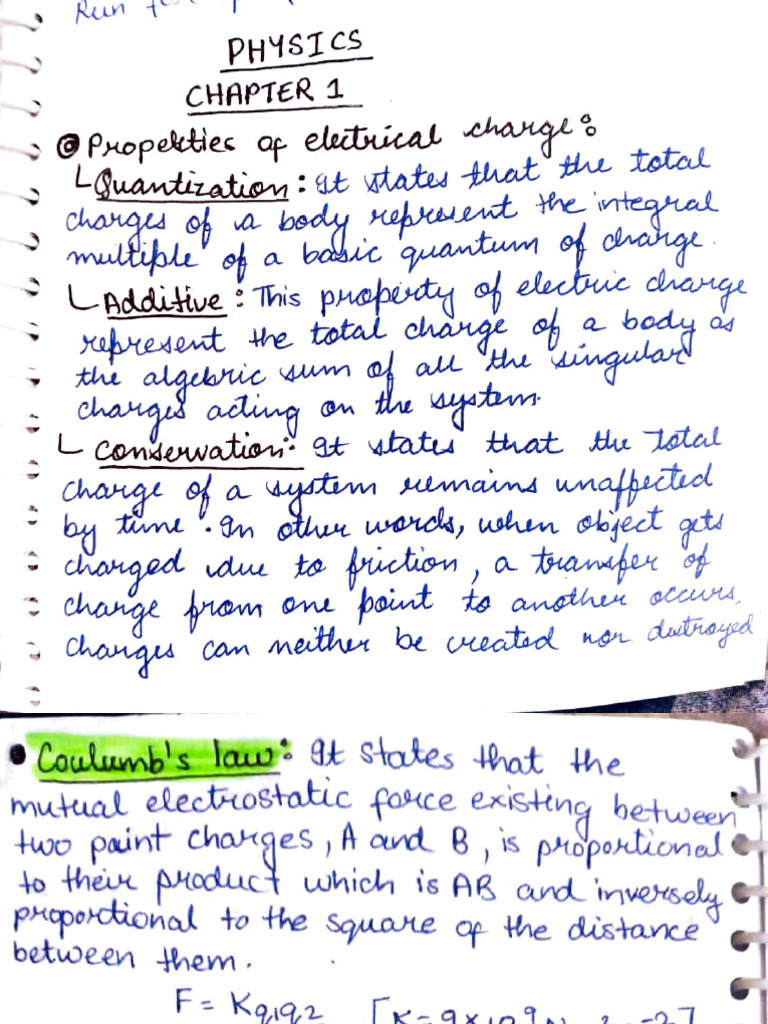 Run
PHYSICS
CHAPTER 1
Properties of electrical charge:
Quantization: It states that the total
charges of a body represent the integral
multiple of a basic quantum of charge.
Additive: This property of electric charge
represent the total charge of a body as
the algebric sum of all the singular
charges acting on the system.
Conservation:- It states that the total
charge of a system remains unaffected
by time. In other words, when object gets
charged due to friction, a transfer of
charge from one point to another occurs,
charges can neither be created nor destroyed
Coulumb's law: It states that the
mutual electrostatic force existing between
two point charges, A and B, is proportional
to their product which is AB and inversely
proportional to the square of the distance
between them.
F = Kq1q2 [K=9×10